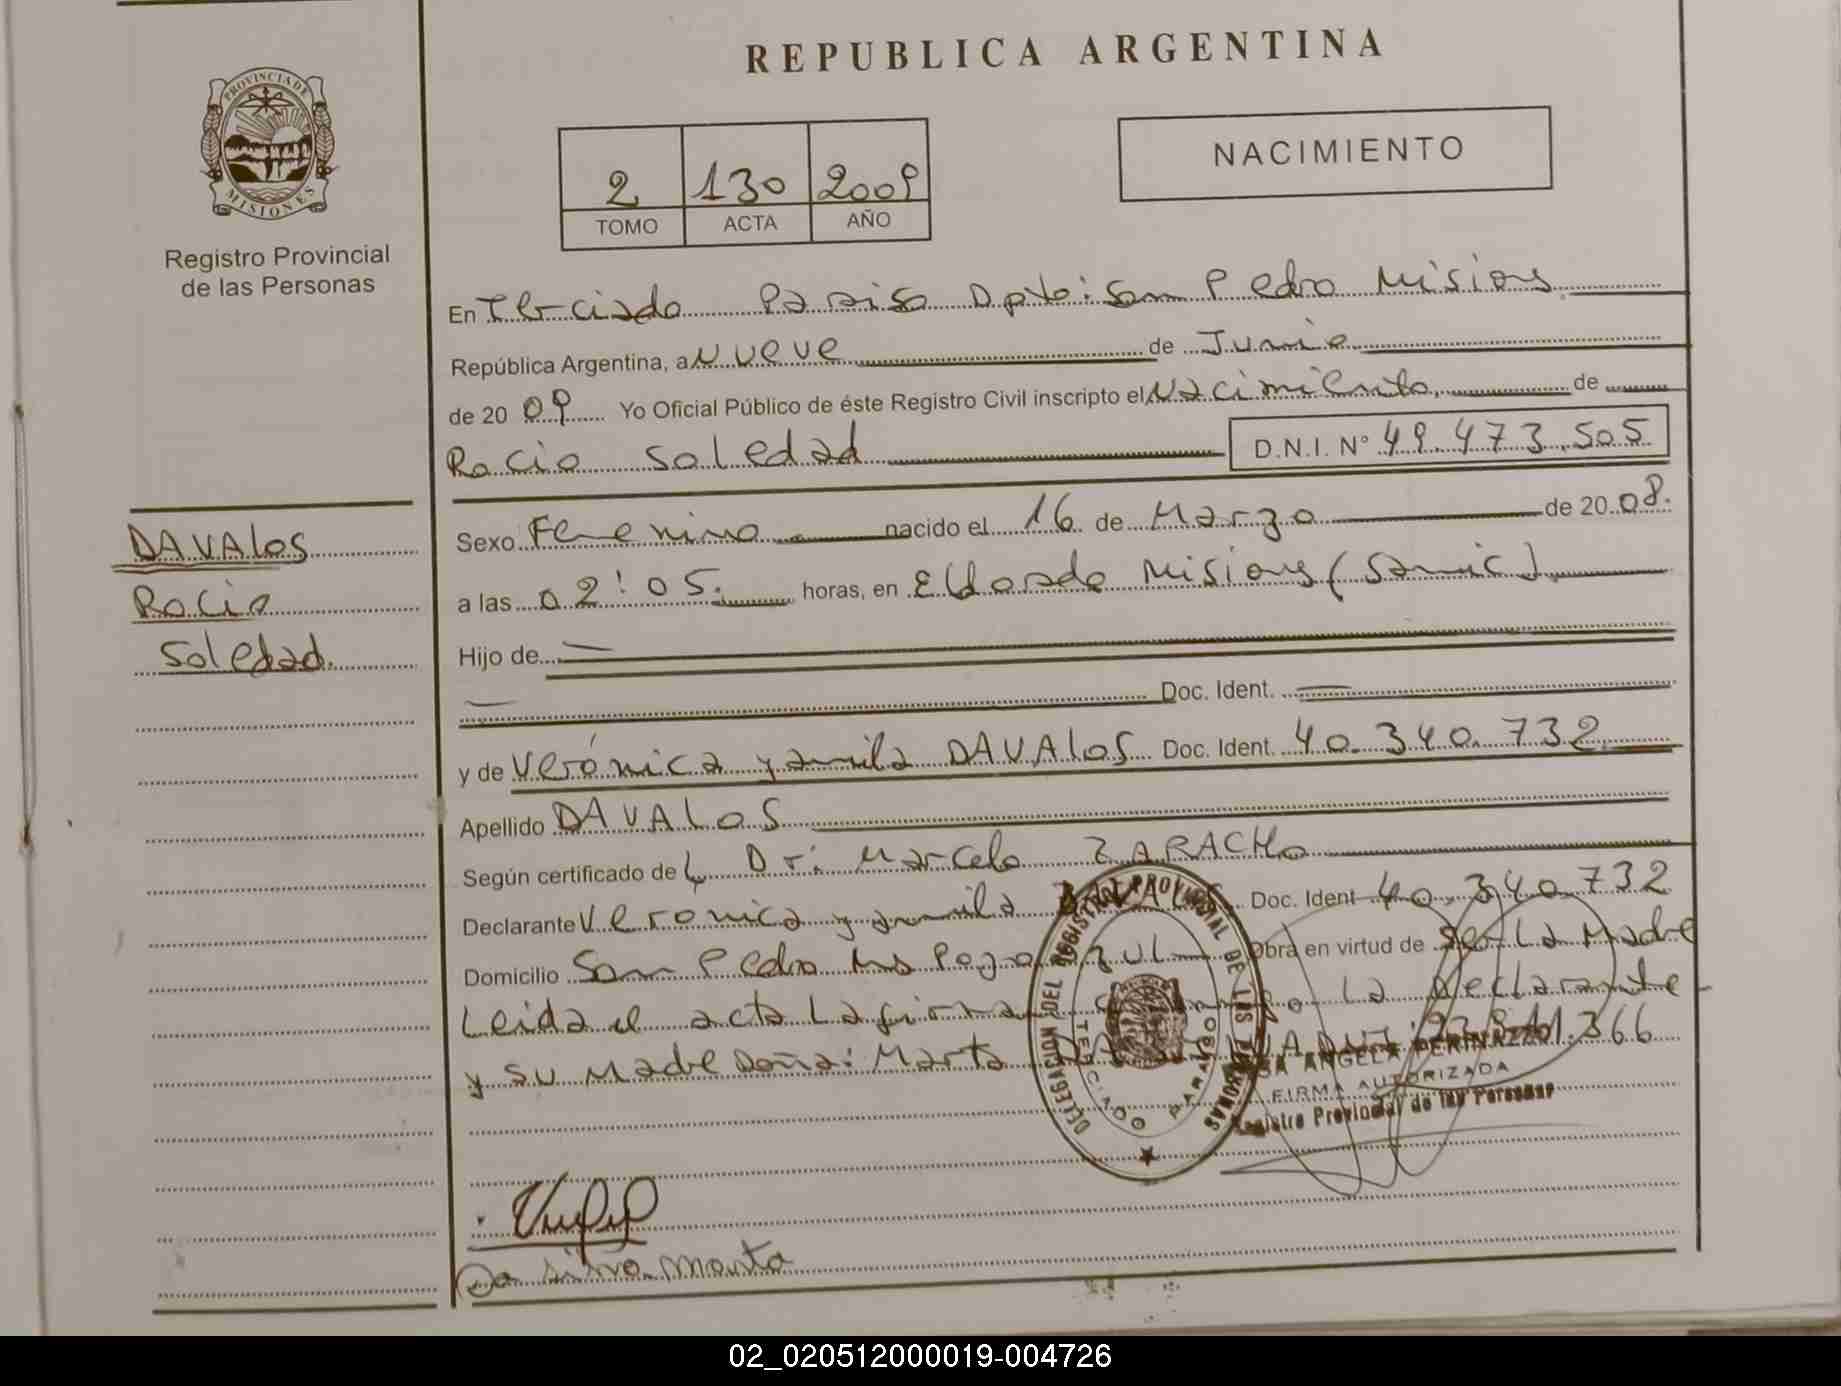 REPUBLICA ARGENTINA
PROVINCIA DE
MISIONES
Registro Provincial
de las Personas
2 130 2009
TOMO ACTA AÑO
NACIMIENTO
En Terciado Paraiso Dpto: San Pedro Misiones
República Argentina, a Nueve de Junio
de 20 09 Yo Oficial Público de éste Registro Civil inscripto el Nacimiento de
Rocio Soledad D.N.I. Nº 49.473.505
DAVALOS
Rocio
Soledad
Sexo Femenino nacido el 16 de Marzo de 20 08.
a las 02:05. horas, en Eldorado Misiones (Samic)
Hijo de
Doc. Ident.
y de Verónica yamila DAVALOS Doc. Ident. 40.340.732
Apellido DAVALOS
Según certificado de Dr: Marcelo ZARACHO
Declarante Veronica yamila DAVALOS Doc. Ident 40.340.732
Domicilio San Pedro Mns Pozo Azul Obra en virtud de Ser La Madre
Leida el acta La firma conmigo La declarante
y su Madre Doña: Marta DA 366
DELEGACION DEL REGISTRO PROVINCIAL DE LAS PERSONAS
TERCIADO PARAISO
ANGELA PERINAZZO
FIRMA AUTORIZADA
Registro Provincial de las Personas
Da silva marta
02_020512000019-004726